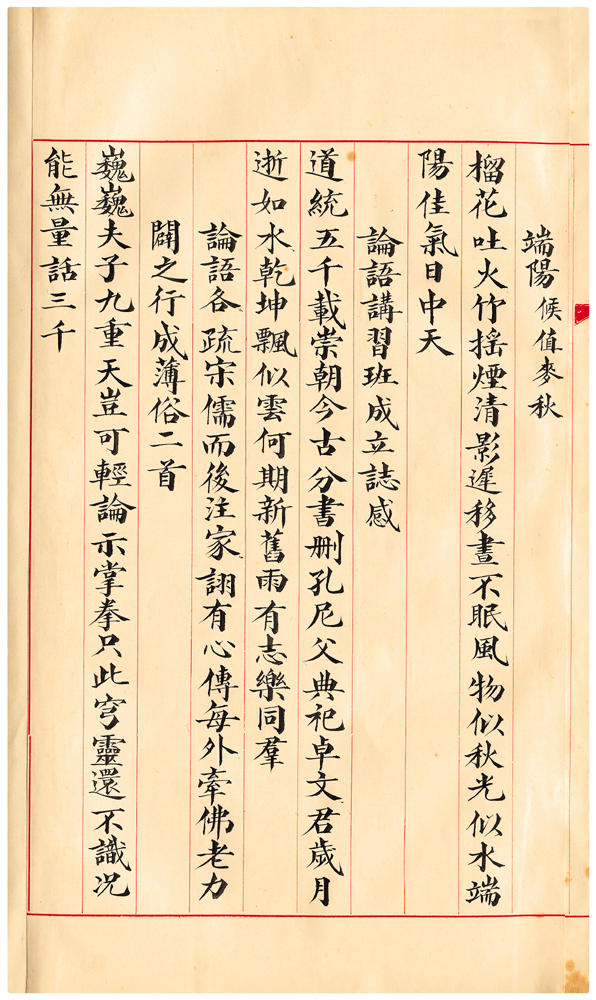 端陽候值麥秋
榴花吐火竹搖煙清影遲移晝不眠風物似秋光似水端
陽佳氣日中天
論語講習班成立誌感
道統五千載崇朝今古分書刪孔尼父典祀卓文君歲月
逝如水乾坤飄似雲何期新舊雨有志樂同羣
論語各疏宋儒而後注家詡有心傳每外牽佛老力
闢之行成薄俗二首
巍巍夫子九重天豈可輕論示掌拳只此穹靈還不識況
能無量話三千